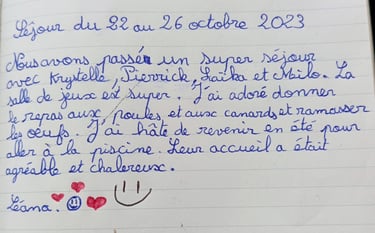 Séjour du 22 au 26 octobre 2023
Nous avons passé un super séjour
avec Krystelle, Pierrick, Laïka et Milo. La
salle de jeux est super. J'ai adoré donner
le repas aux poules, et aux canards et ramasser
les oeufs. J'ai hâte de revenir en été pour
aller à la piscine. Leur accueil a était
agréable et chalereux.
Léana.